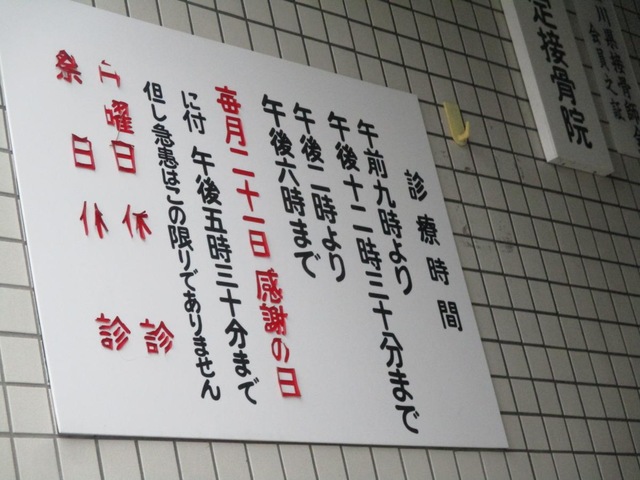 会員之証
足接骨院
診療時間
午前九時より
午後十二時三十分まで
午後二時より
午後六時まで
毎月二十一日 感謝の日
に付 午後五時三十分まで
但し急患はこの限りでありません
日曜日休診
祭日休診